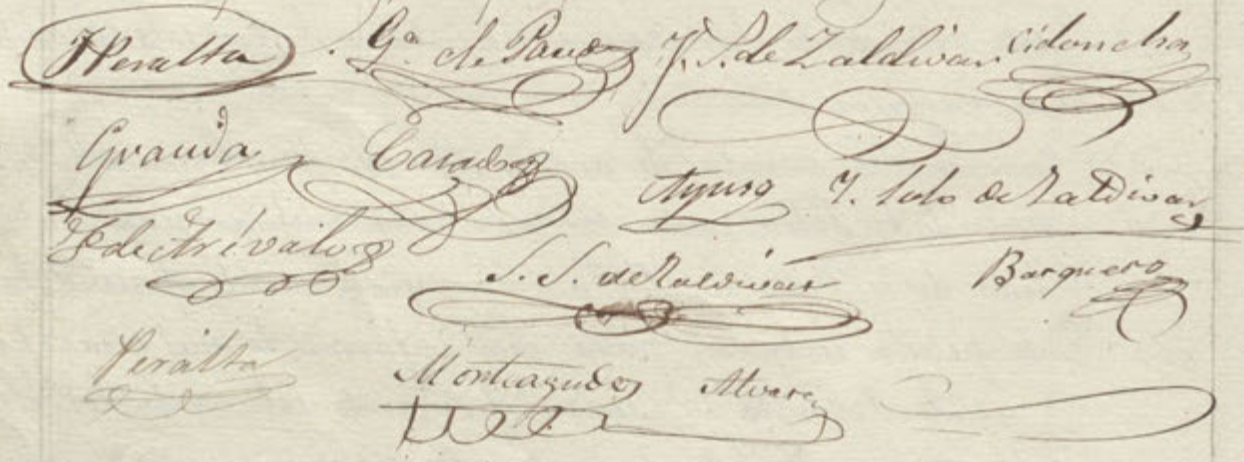 Peralta Ga. de Paredes J. S. de Zaldivar Cidoncha
Granda
Ayuso J. Solo de Zaldivar
de Arévalo
S. S. de Zaldivar Barquero
Peralta Monteagudo Alvarez